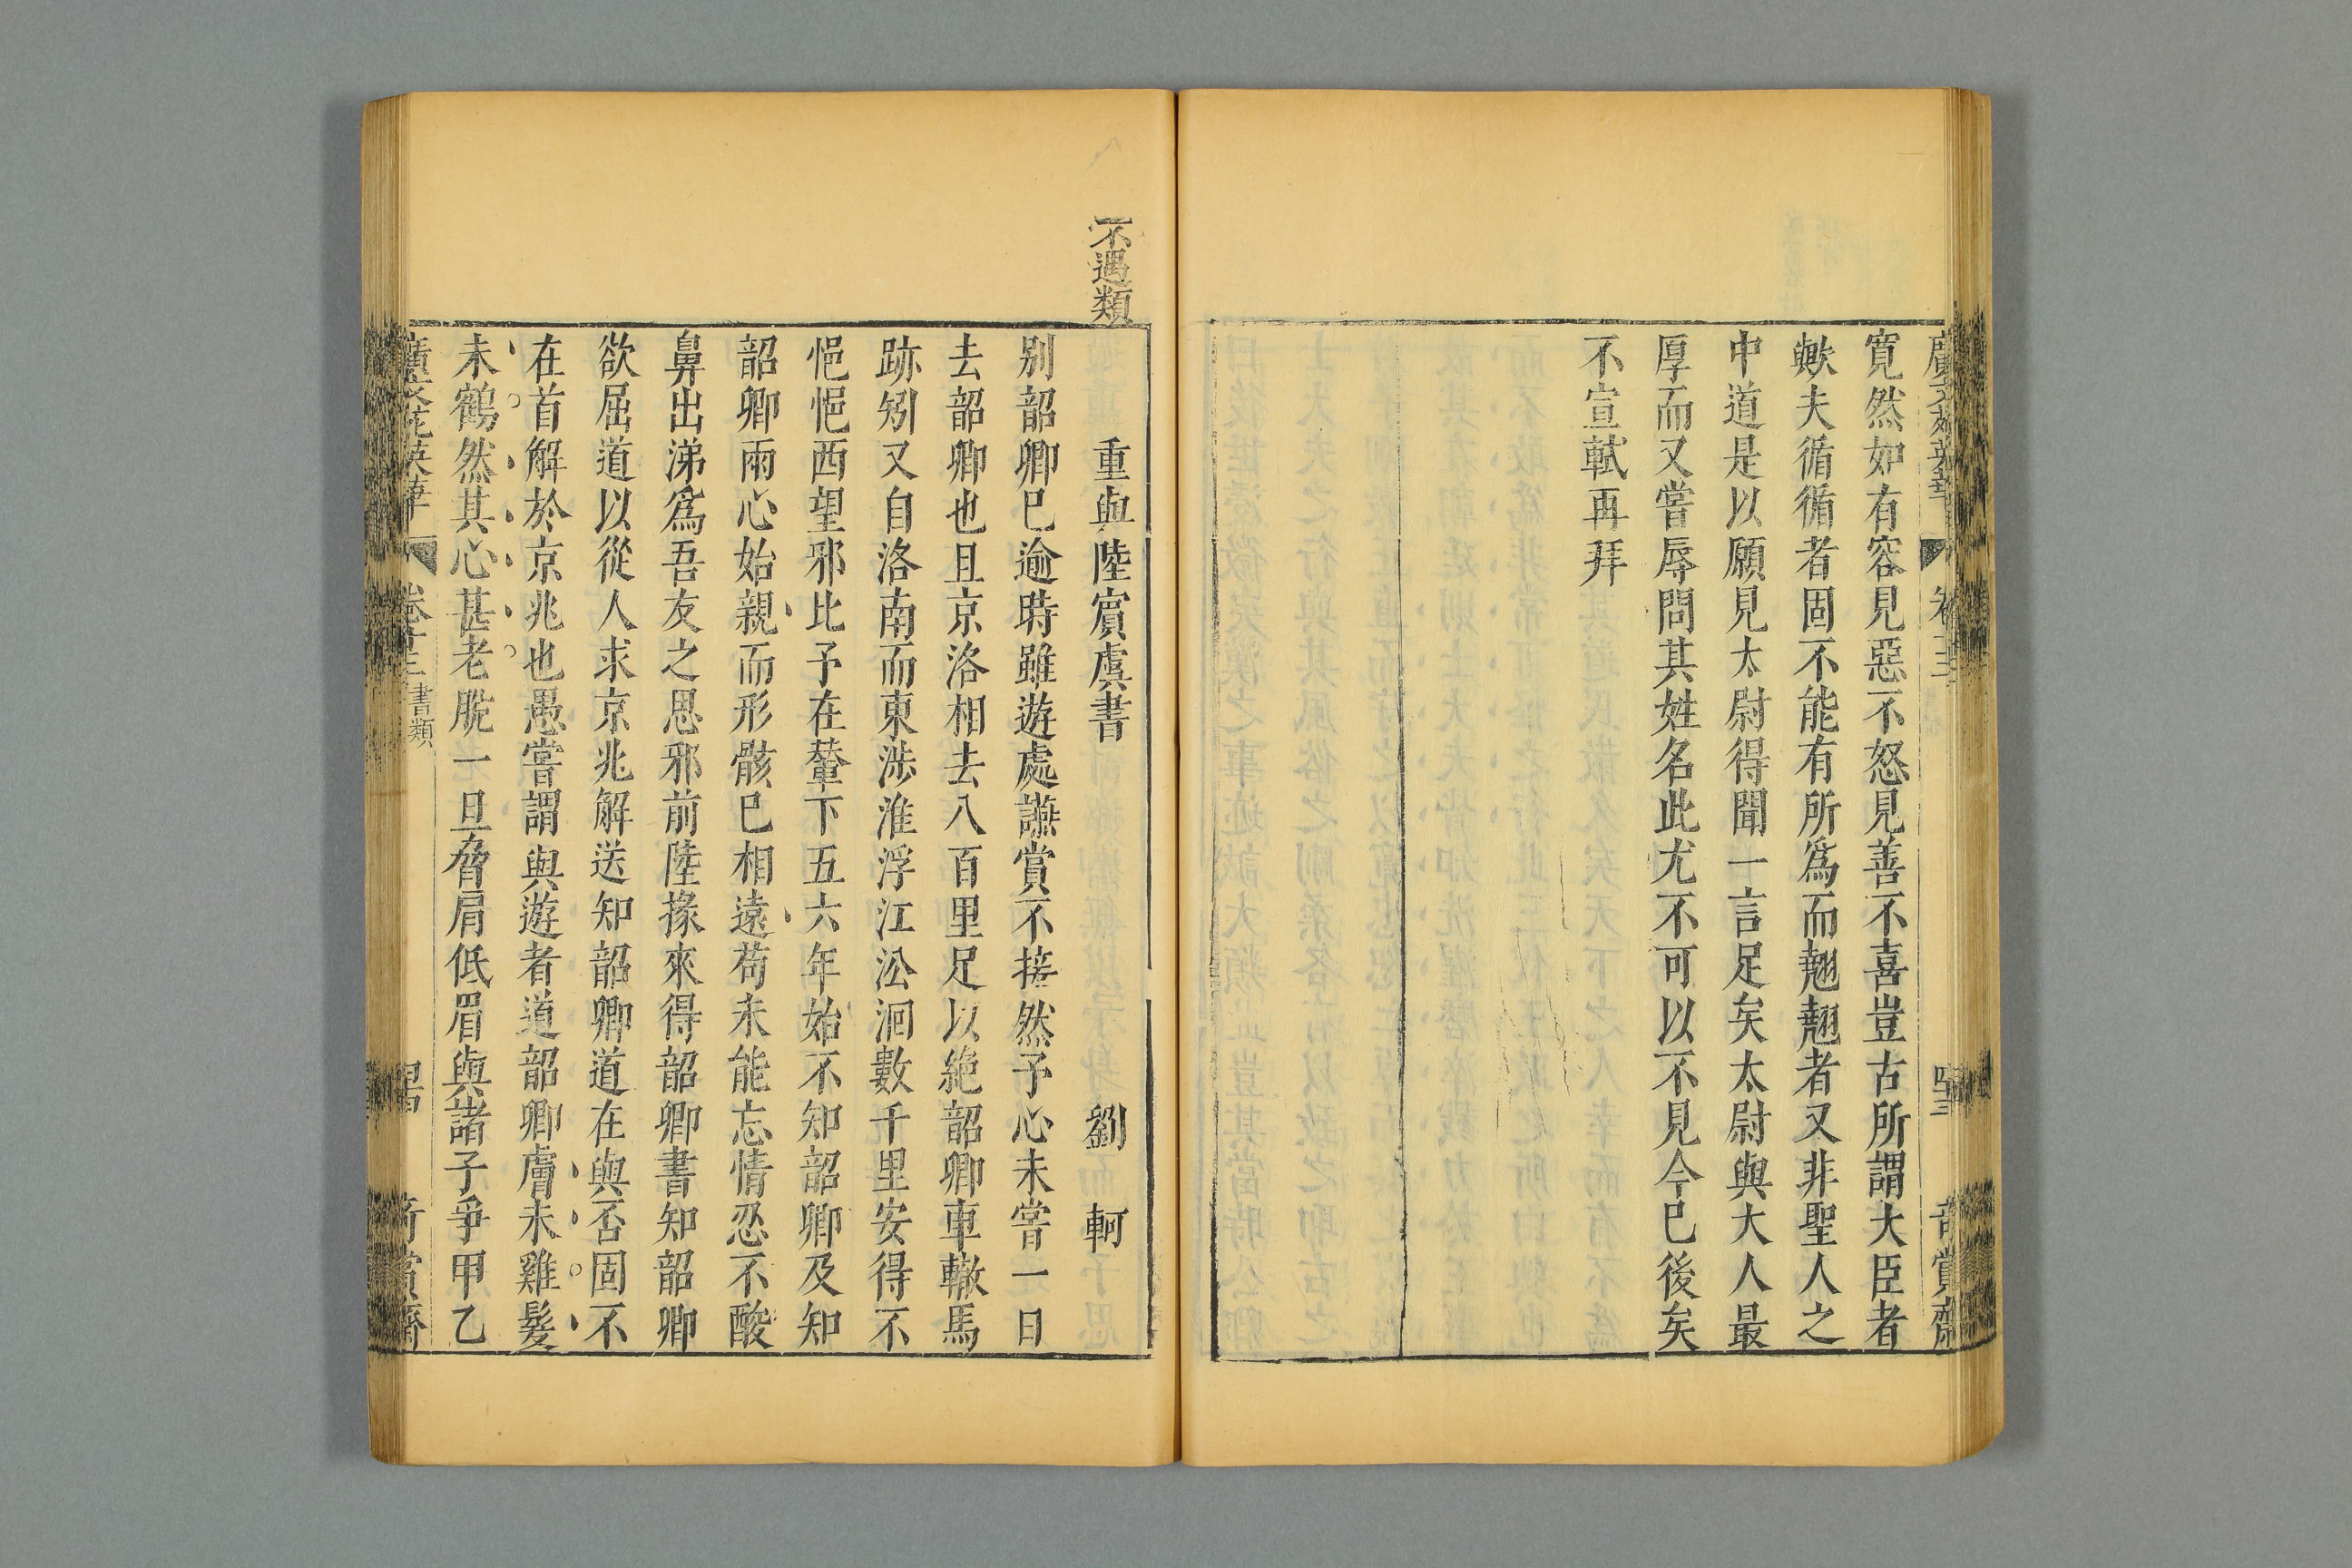 寬然如有容見惡不怒見善不喜豈古所謂大臣者
歟夫循循者固不能有所爲而翹翹者又非聖人之
中道是以願見太尉得聞一言足矣太尉與大人最
厚而又嘗辱問其姓名此尤不可以不見今已後矣
不宣軾再拜
不遇類
重與陸賓虞書 劉軻
別韶卿已逾時雖遊處讌賞不接然予心未嘗一日
去韶卿也且京洛相去八百里足以絶韶卿車轍馬
跡矧又自洛南而東涉淮浮江㳂洄數千里安得不
悒悒西望邪比予在輦下五六年始不知韶卿及知
韶卿兩心始親而形骸已相遠苟未能忘情忍不酸
鼻出涕爲吾友之思邪前陸掾來得韶卿書知韶卿
欲屈道以從人求京兆解送知韶卿道在與否固不
在首解於京兆也愚嘗謂與遊者道韶卿膚未雞髮
未鶴然其心甚老脫一旦脅肩低眉與諸子爭甲乙
書類